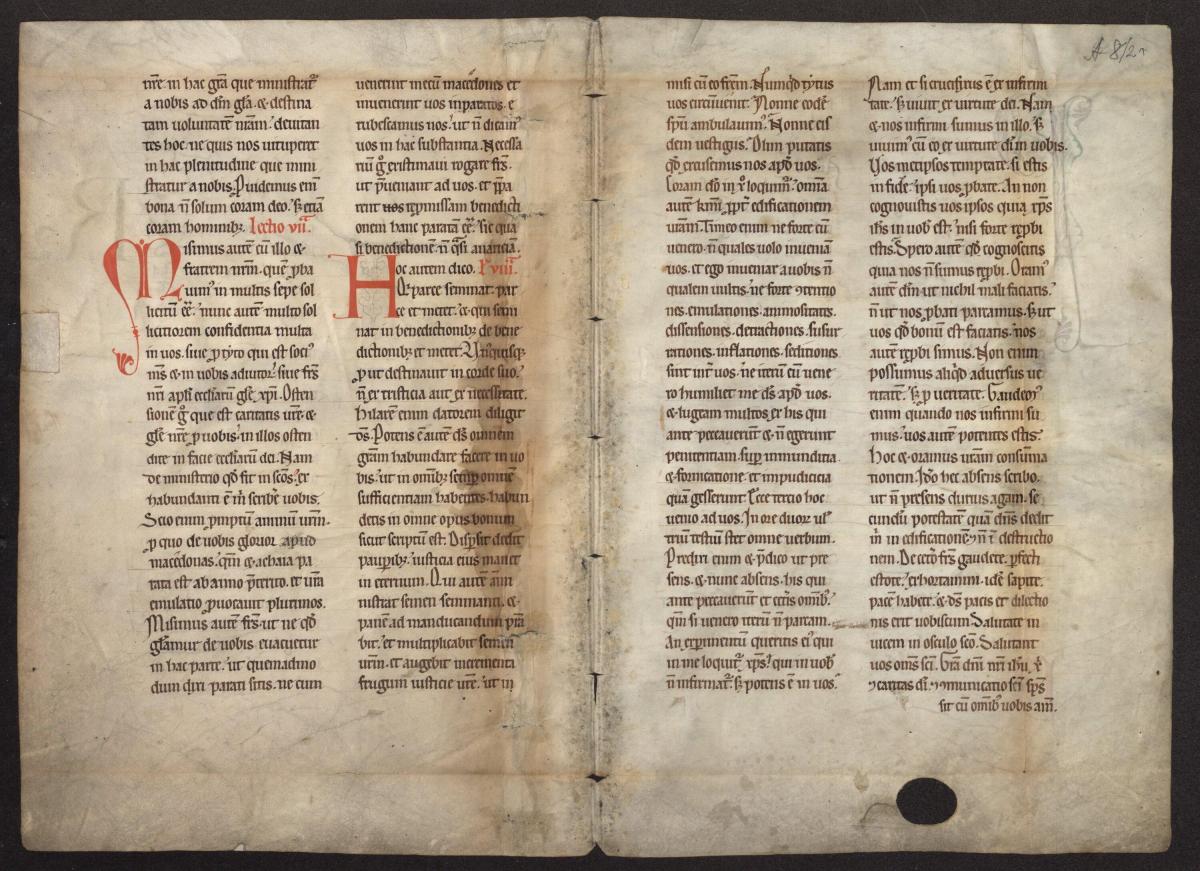 nr̄e in hac gr̄a que ministrat᷑
a nobis ad dn̄i gl̄a. & destina
tam voluntatē nr̄am. deuitan
tes hoc. ne quis nos uituperet
in hac plenitudine que mini
stratur a nobis. Puidemus eni᷑
bona n̄ solum coram deo. sꝫ etiā
coram hominibꝫ. Lectio vii.
Misimus autē cū illo &
fratrem nr̄m. quē ꝓba
uimꝰ in multis sepe sol
licitū eē. nunc autē multo sol
licitiorem confidentia multa
in uos. siue ꝓ tyto qui est sociꝰ
mꝰ & in uobis adiutor. siue fr̄s
nr̄i apl̄i eccl̄iarū gl̄e xp̄i. Osten
sionē gͦ que est caritatis ur̄e &
gl̄e nr̄e ꝓ uobis. in illos osten
dite in facie eccl̄iarū dei. Nam
de ministerio qd̄ fit in sc̄os. ex
habundanti ē m̄ scribē uobis.
Scio enim ꝓmptū animū ur̄m.
ꝓ quo de uobis glorior apud
macedonas. qm̄ & achaia pa
rata est ab anno p̄terito. et ur̄a
emulatio ꝓuocauit plurimos.
Misimus autē fr̄s. ut ne qd̄
gl̄amur de uobis euacuetur
in hac parte. ut quemadmo
dum dixi parati sitis. ne cum
uenerint mecū macedones et
inuenerint uos inparatos. e
rubescamus nos. ut n̄ dicamꝰ
uos in hac substantia. Necessa
riū gͦ existimaui rogare fr̄s.
ut p̄ueniant ad uos. et p̄pa
rent uos repmissam benedicti
onem hanc paratā eē. sic qua
si benedictionē. n̄ q̄si auaricia.
Hoc autem dico. L' viii.
Qi parce seminat. par
ce et metet. & qui semi
nat in benedictionibꝫ de bene
dictionibꝫ et metet. Vnusquisqꝫ
ꝓut destinauit in corde suo.
n̄ ex tristicia aut ex necessitate.
hilarē enim datorem diligit
ds̄. Potens ē autē ds̄ omnem
gr̄am habundare facere in uo
bis. ut in omībꝫ semp omnē
sufficientiam habentes. habun
detis in omne opus bonum
sicut scriptum est. Dispsit dedit
paupibꝫ. iusticia eius manet
in eternum. Qui autē āmi
nistrat semen seminanti. &
panē ad manducandum p̄sta
bit. et multiplicabit semen
ur̄m. et augebit incrementi
frugum iusticie ur̄e. ut in
misi cū eo fr̄em. Numqd̄ tytus
uos circūuenit. Nonne eodē
sp̄u ambulauimꝰ. Nonne eis
dem uestigiis. Olim putatis
qd̄ excusemus nos apd̄ uos.
Coram dō in xͦ loquimꝰ. omīa
autē kmī ꝓpt̄ edificationem
ur̄am. Timeo enim ne forte cū
uenero. n̄ quales uolo inueniā
uos. et ego inueniar a uobis n̄
qualem uultis. ne forte ꝯtentio
nes. emulationes. animositates.
dissensiones. detractiones. susur
rationes. inflationes. seditiones
sint int̄ uos. ne iterū cū uene
ro humiliet me ds̄ apd̄ uos.
& lugeam multos ex his qui
ante peccauerūt & n̄ egerunt
penitentiam. sup inmundicia
& fornicatione et impudicicia
quā gesserunt. Ecce tercio hoc
uenio ad uos. In ore duoꝝ ul'
triū testiū stet omne uerbum.
Predixi enim & p̄dico ut pre
sens. & nunc absens. his qui
ante peccauerūt et cet̄is omībꝰ.
qm̄ si uenero iterū n̄ parcam.
An experimentū queritis ei' qui
in me loquit᷑ xp̄s. qui in uob'
n̄ infirmat᷑. sꝫ potens ē in uos.
Nam et si crucifixus ē ex infirmi
tate. sꝫ uiuit ex uirtute dei. Nam
& nos infirmi sumus in illo. sꝫ
uiuimꝰ cū eo ex uirtute di᷑ in uobis.
Uos metipsos temptate. si estis
in fide. ipsi uos ꝓbate. An non
cognouistis uos ipsos quia xp̄s
ih̄s in uob' est. nisi forte repbi
estis. Spero autē qd̄ cognoscitis
quia nos n̄ sumus repbi. Oramꝰ
autē dm̄ ut nichil mali faciatis.
n̄ ut nos ꝓbati pareamus. sꝫ ut
uos qd̄ bonū est faciatis. nos
autē repbi simus. Non enim
possumus aliqd̄ aduersus ue
ritatē. sꝫ ꝓ ueritate. Gaudemꝰ
enim quando nos infirmi su
mus. uos autē potentes estis.
Hoc & oramus ur̄am consūma
tionem. Idō hec absens scribo.
ut n̄ presens durius agam. se
cundū potestatē quā dn̄s dedit
m̄ in edificationē ⁊ n̄ ī destructio
nem. De cet̄o fr̄s gaudete. ꝑfecti
estote. exhortamini. idē sapite.
pacē habete. & ds̄ pacis et dilectio
nis erit uobiscum. Salutate in
uicem in osculo sc̄o. Salutant
uos om̄s sc̄i. Gr̄a dn̄i nr̄i ih̄u xͥ
⁊ caritas di᷑ ⁊ ꝯmunicatio sc̄i sp̄s
sit cū omībꝰ uobis am̄.
A 8/2r